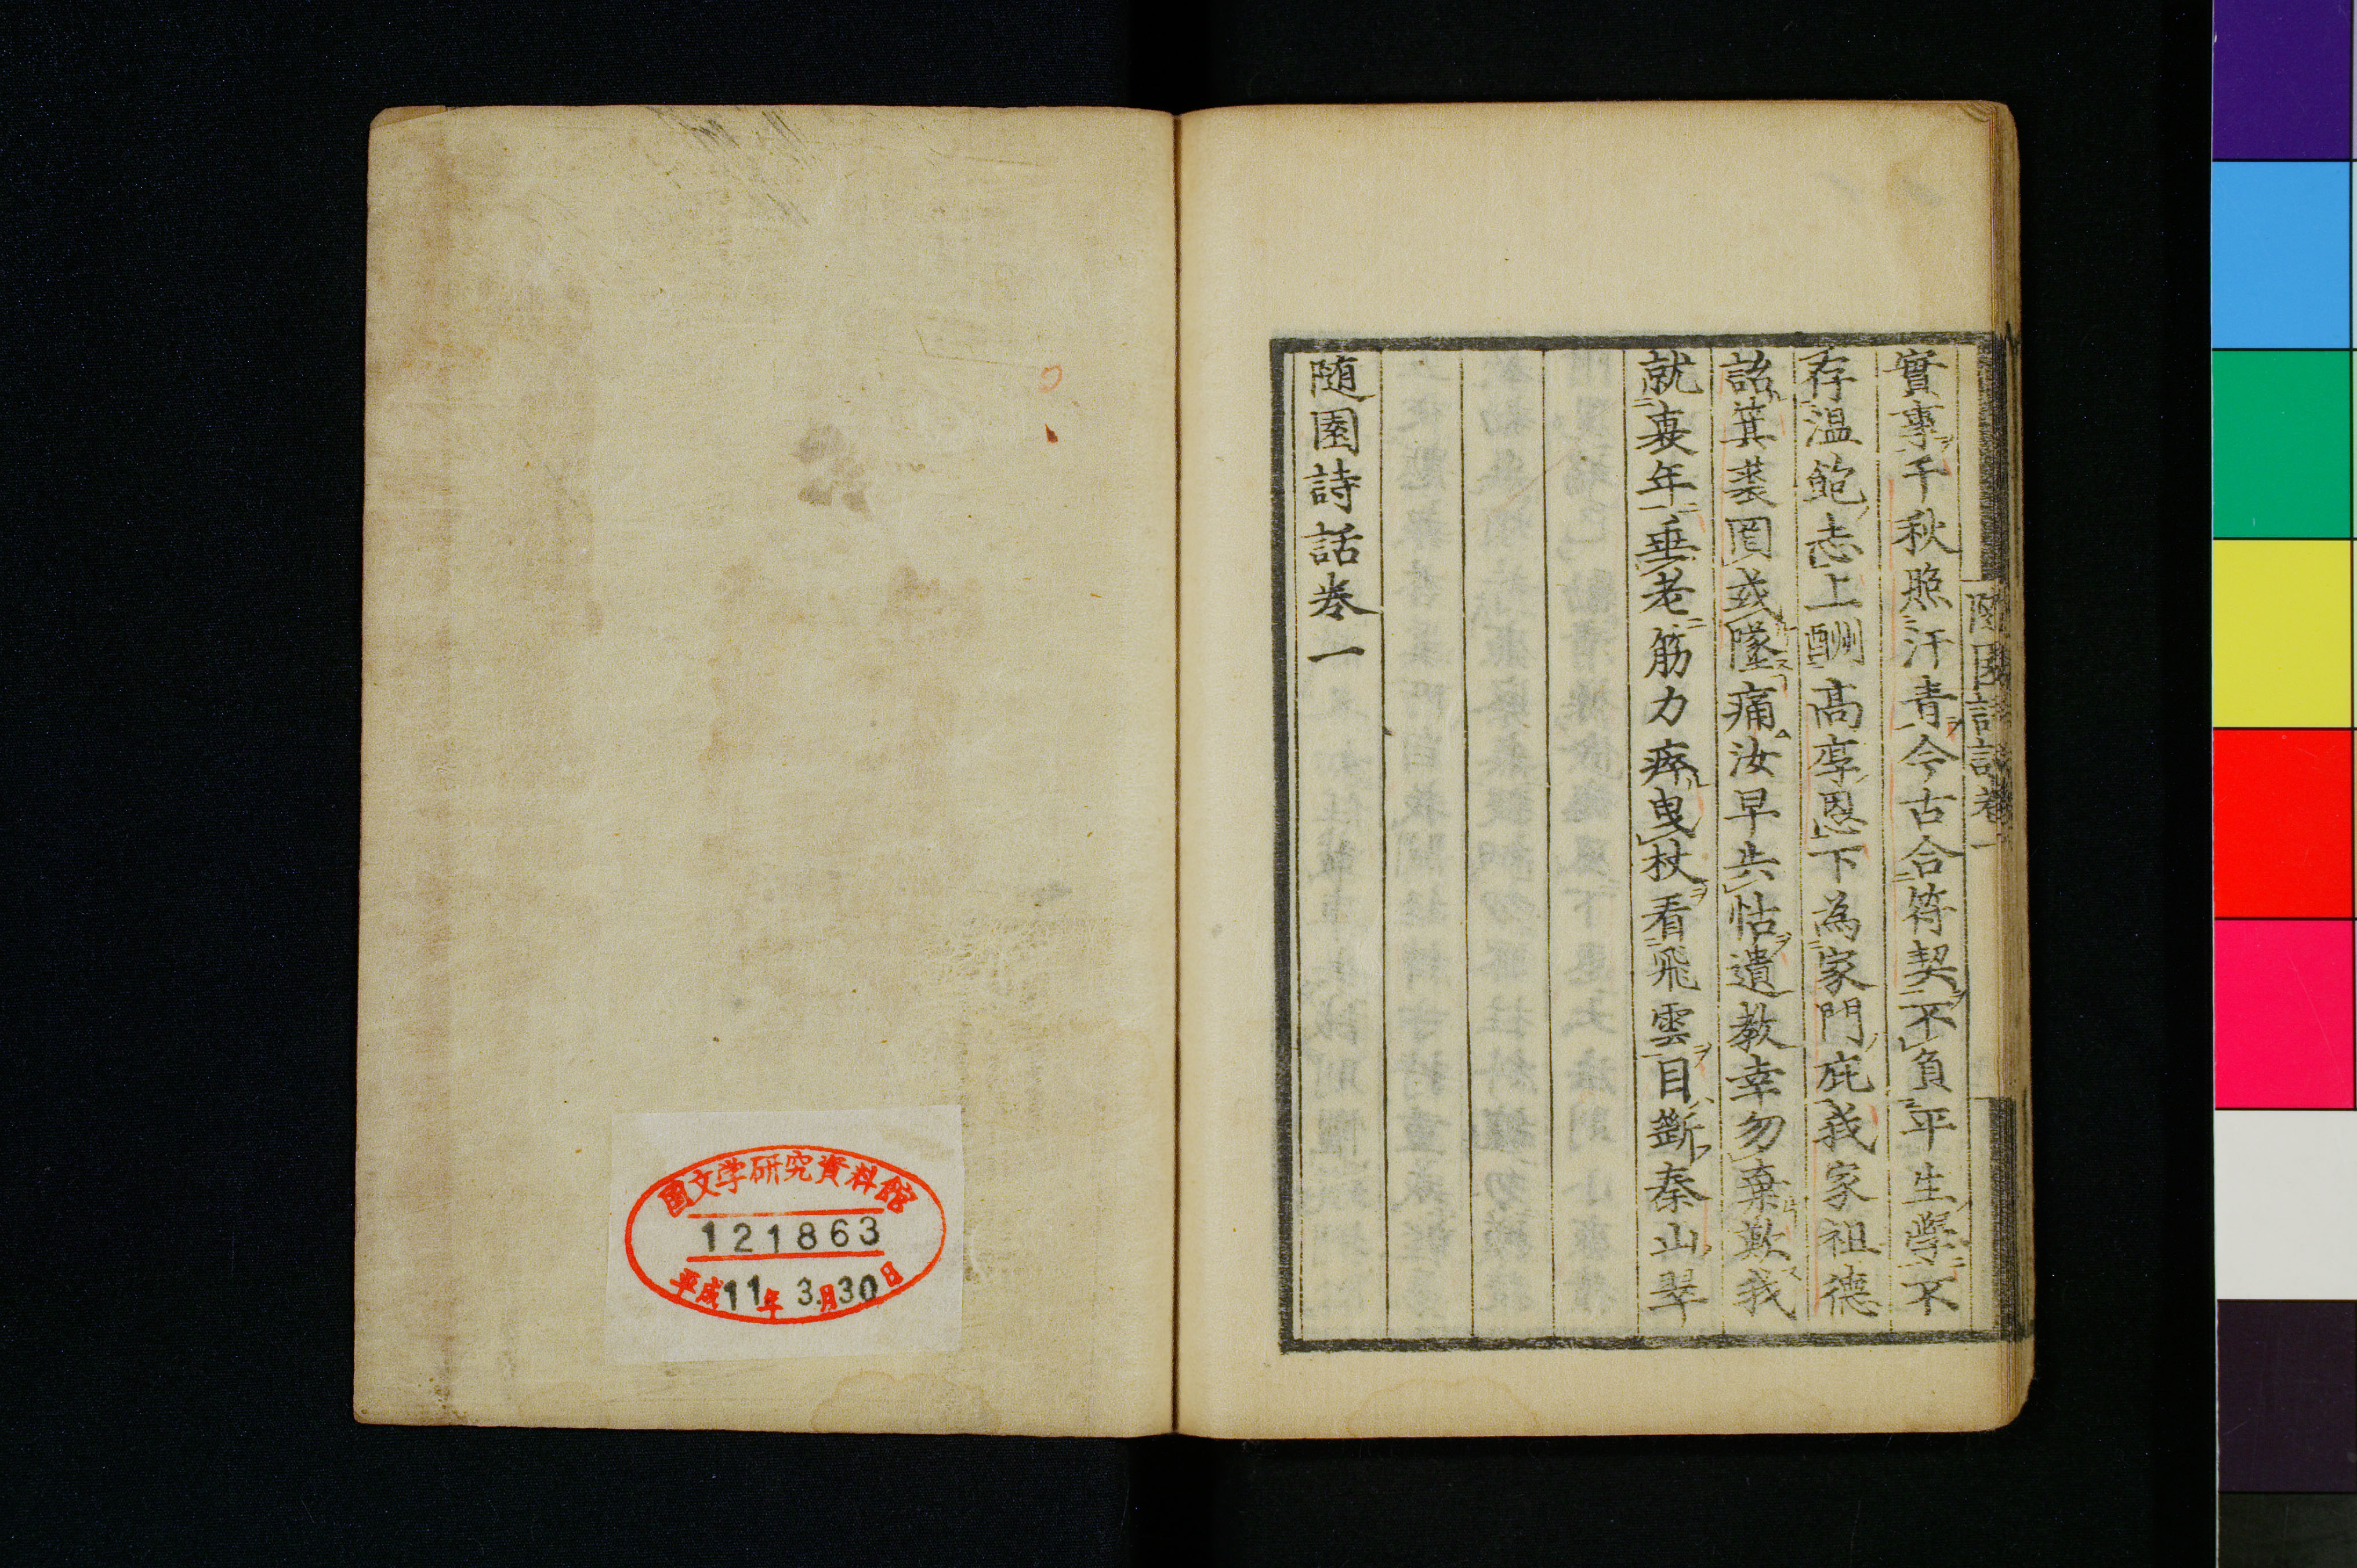 實事千秋照汗青今古合符契不負平生學不
存温飽志上酬高厚恩下為家門庇我家祖德
詒箕裘罔或墜痛汝早失怙遺教幸勿棄歎我
就衰年垂老筋力瘁曳杖看飛雲目斷秦山翠
随園詩話巻一
国文学研究資料館
121863
平成11年3月30日